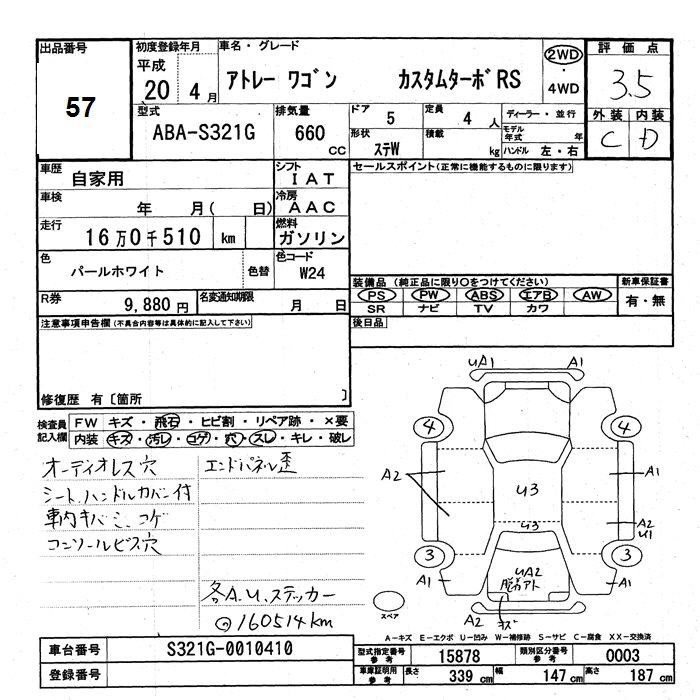 出品番号
57
初度登録年月
平成
20 4 月
車名・グレード
アトレー ワゴン カスタムターボRS
2WD
・
4WD
評価点
3.5
型式
ABA-S321G
排気量
660 CC
ドア 5
定員 4 人
形状 ステW
積載 kg
ディーラー・並行
モデル年式 年
ハンドル 左・右
外装 内装
C D
車歴 自家用
シフト IAT
セールスポイント(正常に機能するものに限ります)
車検 年 月( 日)
冷房 AAC
走行 16万0千510 km
燃料 ガソリン
色 パールホワイト 色替
色コード W24
装備品 (純正品に限り○をつけてください)
新車保証書
PS PW ABS エアB AW
有・無
SR ナビ TV カワ
R券 9,880 円
名変通知期限 月 日
後日品
注意事項申告欄(不具合内容等は具体的に記入して下さい)
修復歴 有〔箇所 〕
検査員記入欄
FW キズ・飛石・ヒビ割・リペア跡・×要
内装 キズ・汚レ・コゲ・穴・スレ・キレ・破レ
オーディオレス穴 エンドパネル歪
シート、ハンドルカバー付
車内キバミ、コゲ
コンソールビス穴
各A.U.ステッカー
@160514km
UA1 A1
4 4
A2 U3 A1
A2
U1
U3
3 3
A1 UA2 A1
脱着アト
A2 キズ
スペア
A-キズ E-エクボ U-凹み W-補修跡 S-サビ C-腐食 XX-交換済
車台番号 S321G-0010410
登録番号
型式指定番号 参考 15878
類別区分番号 参考 0003
車庫証明用 参考 長さ 339 cm 幅 147 cm 高さ 187 cm